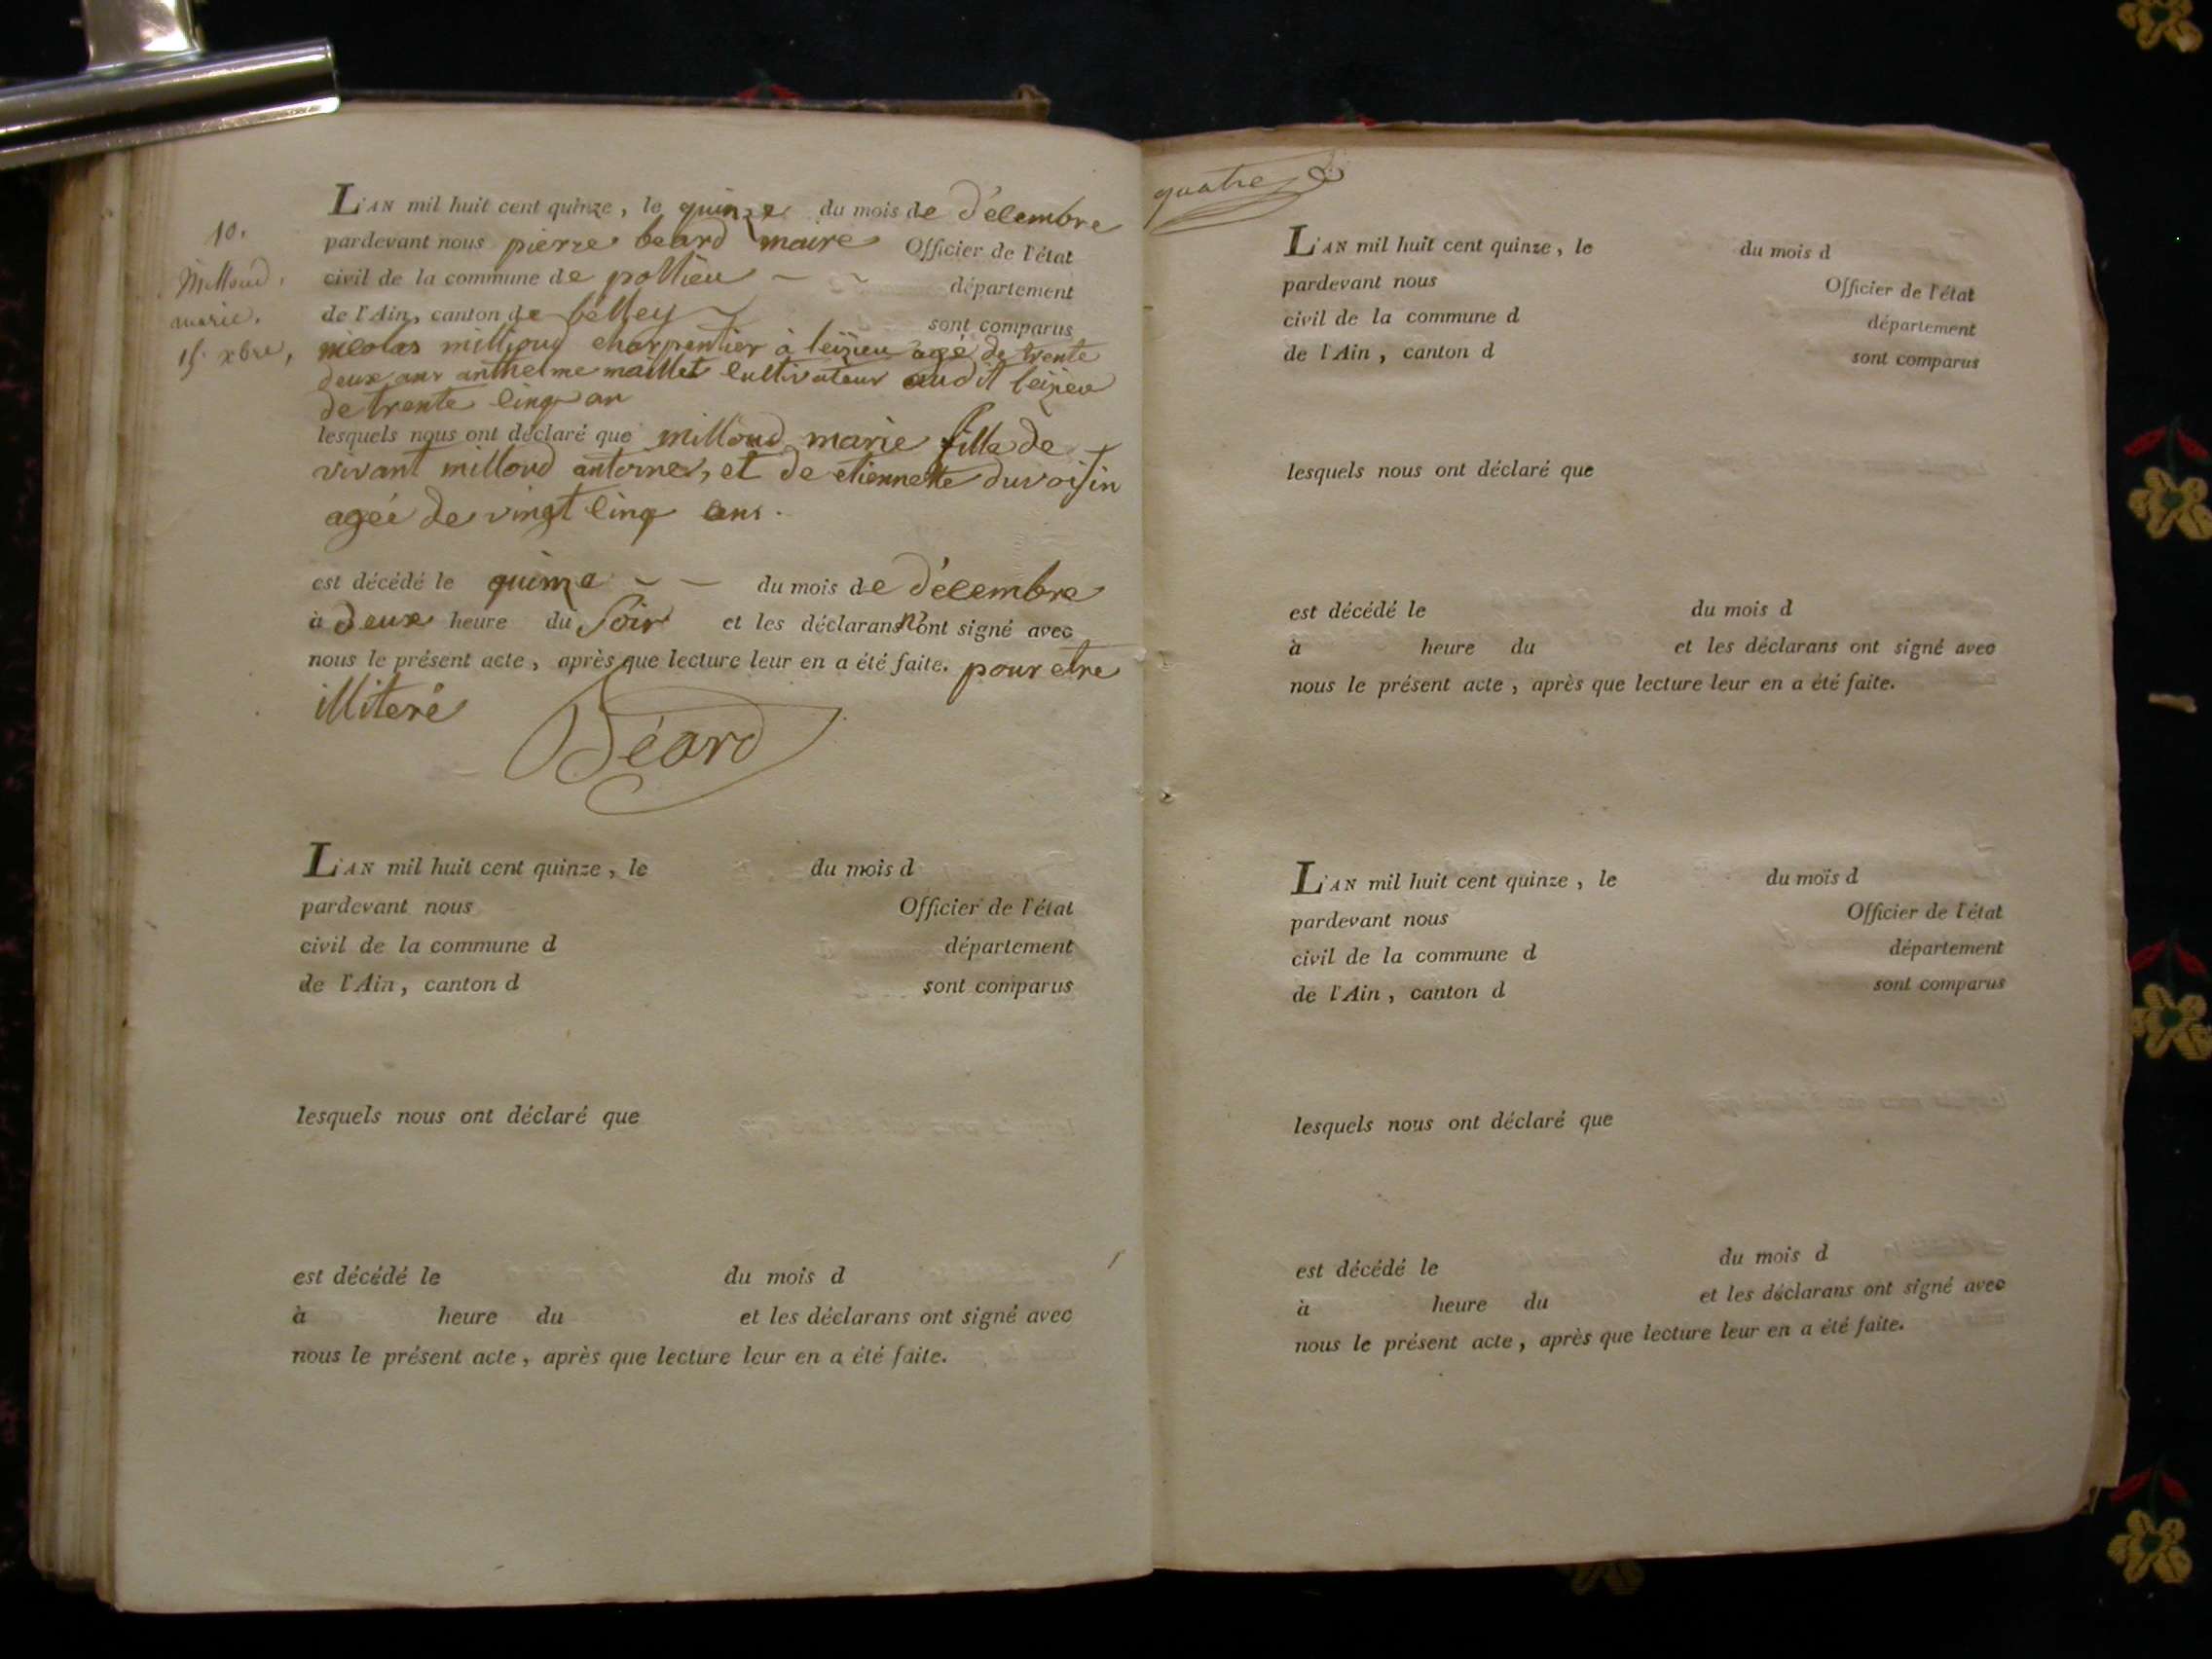 10.
Milloud,
marie,
15. xbre,
L'AN mil huit cent quinze, le quinze du mois de Décembre
pardevant nous pierre beard maire Officier de l'état
civil de la commune de pollieu ~ ~ département
de l'Ain, canton de belley ~ sont comparus
nicolas millioud charpentier à leizieu agé de trente
deux ans anthelme maillet cultivateur audit leizieu
de trente cinq an
lesquels nous ont déclaré que milloud marie fille de
vivant milloud antoine, et de etiennette duvoisin
agée de vingt cinq ans.
est décédé le quinze ~ — du mois de Décembre
à Deux heure du Soir et les déclarans n'ont signé avec
nous le présent acte, après que lecture leur en a été faite. pour etre
illiteré
Béard
L'AN mil huit cent quinze, le du mois d
pardevant nous Officier de l'état
civil de la commune d département
de l'Ain, canton d sont comparus
lesquels nous ont déclaré que
est décédé le du mois d
à heure du et les déclarans ont signé avec
nous le présent acte, après que lecture leur en a été faite.
quatre
L'AN mil huit cent quinze, le du mois d
pardevant nous Officier de l'état
civil de la commune d département
de l'Ain, canton d sont comparus
lesquels nous ont déclaré que
est décédé le du mois d
à heure du et les déclarans ont signé avec
nous le présent acte, après que lecture leur en a été faite.
L'AN mil huit cent quinze, le du mois d
pardevant nous Officier de l'état
civil de la commune d département
de l'Ain, canton d sont comparus
lesquels nous ont déclaré que
est décédé le du mois d
à heure du et les déclarans ont signé avec
nous le présent acte, après que lecture leur en a été faite.